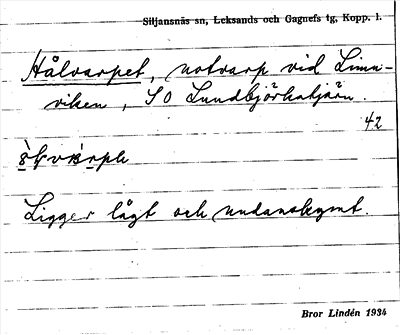 Siljansnäs sn, Leksands och Gagnefs tg, Kopp. l.
Hålvarpet, notvarp vid Limu-
viken, SO Lundbjörkstjärn.
42
Ligger lågt och undanskymt.
Bror Lindén 1934